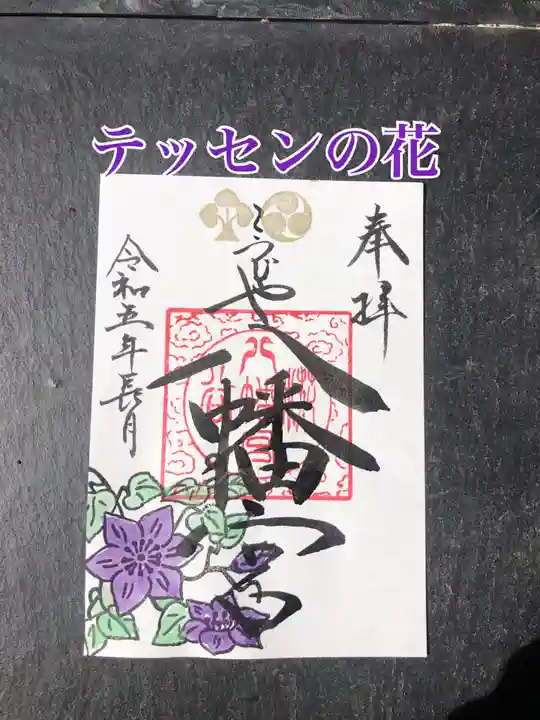 テッセンの花
奉拝
こうじや
八幡宮
令和五年長月